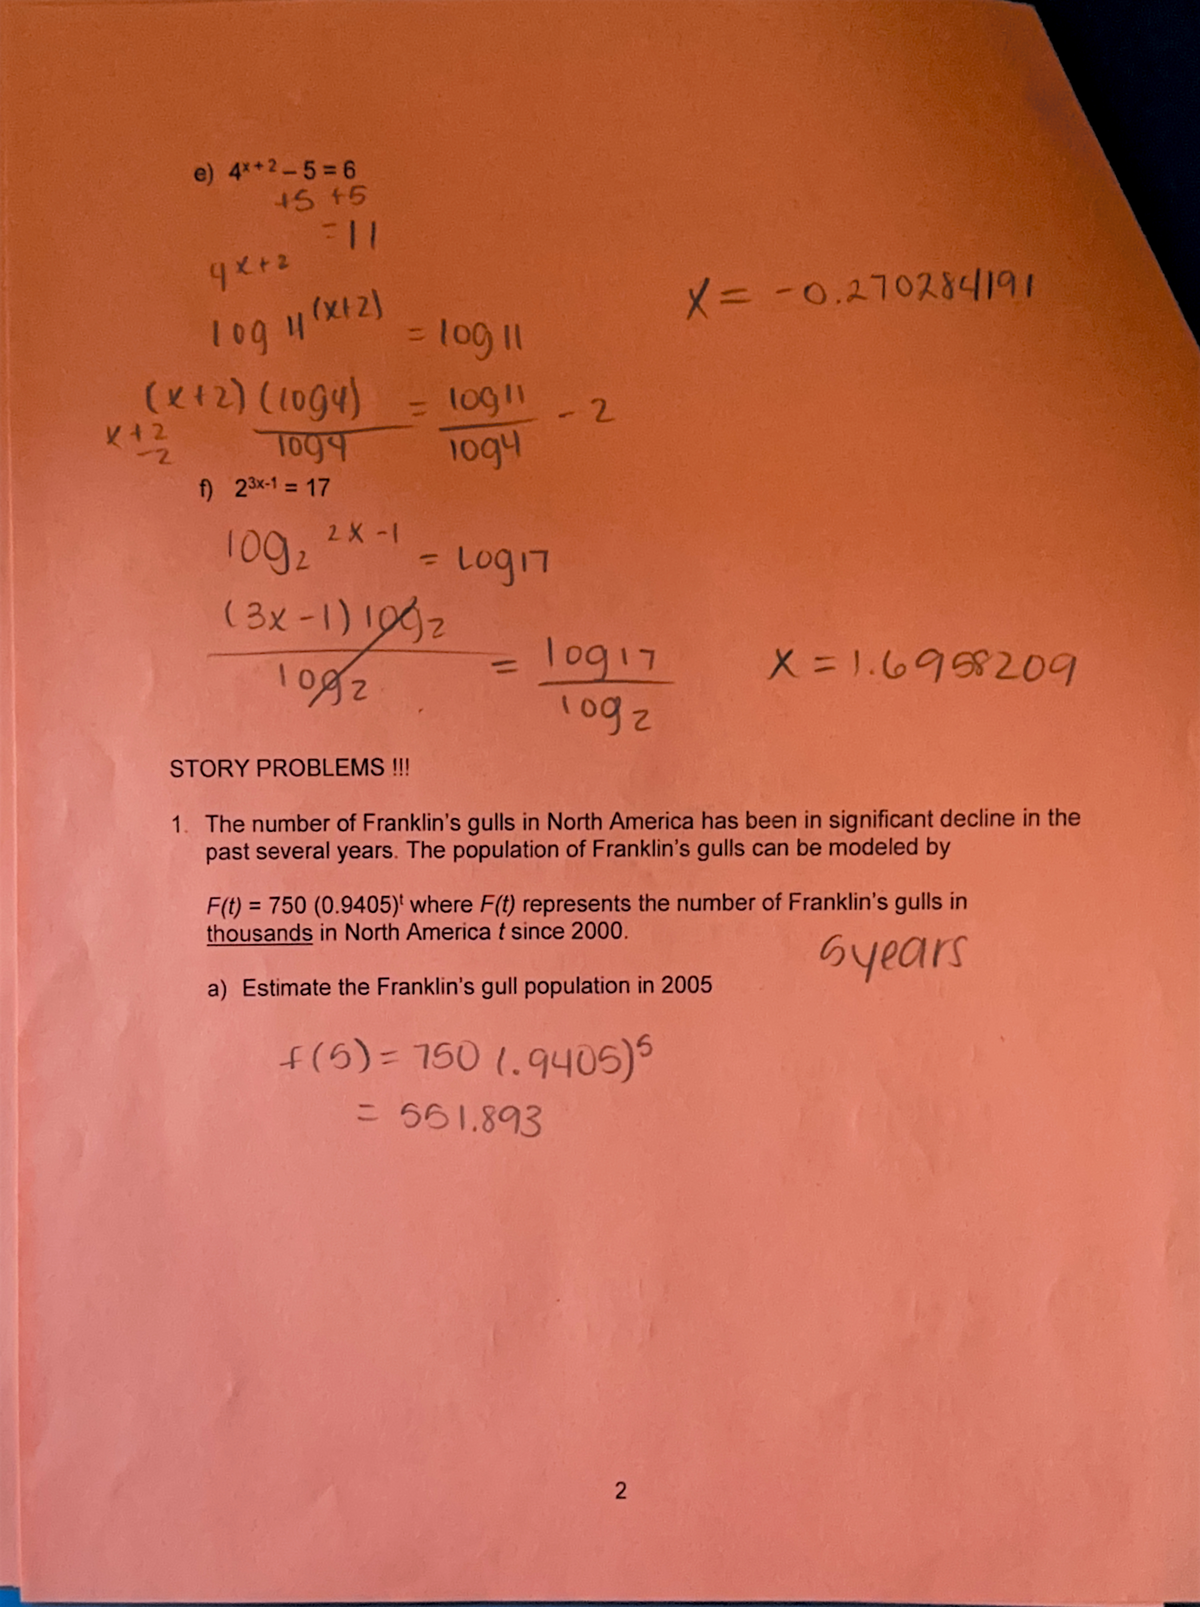 e) 4^x+2 – 5 = 6
+5 +5
= 11
4^x+2
log 4^(x+2) = log 11
(x+2) (log4) / log4 = log11 / log4 - 2
x+2
-2
x = -0.270284191
f) 2^3x-1 = 17
log₂ ^2x-1 = Log17
(3x-1) log₂ / log₂ = log17 / log₂
x = 1.6958209
STORY PROBLEMS !!!
1. The number of Franklin's gulls in North America has been in significant decline in the
past several years. The population of Franklin's gulls can be modeled by
F(t) = 750 (0.9405)^t where F(t) represents the number of Franklin's gulls in
thousands in North America t since 2000.
5years
a) Estimate the Franklin's gull population in 2005
f(5) = 750 (.9405)^5
= 551.893
2